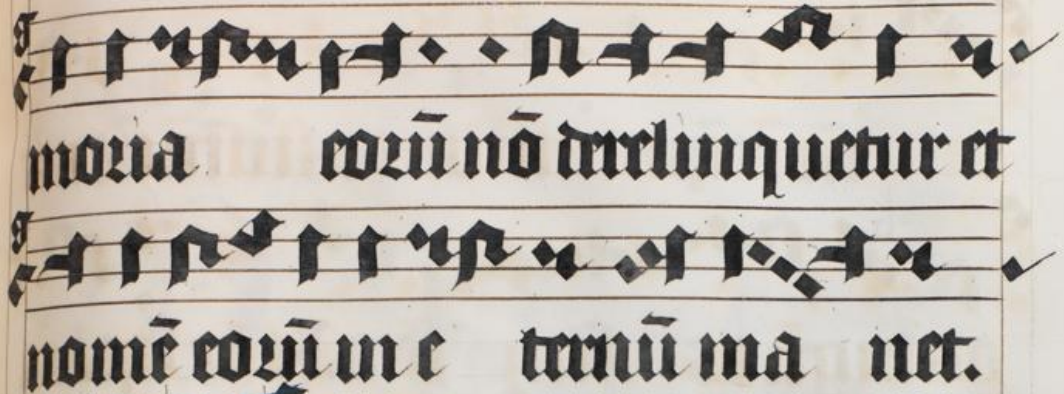 moria eorū nō derelinquetur et
nomē eorū in e ternū ma net.